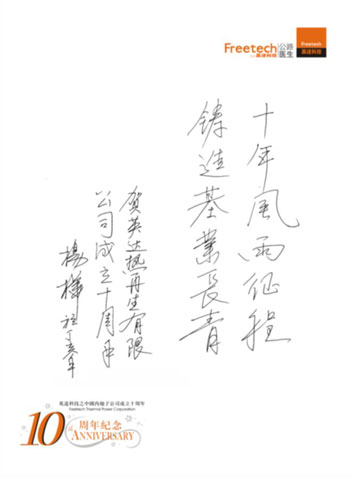 Freetech 公路医生
英达科技
Freetech
英达科技
十年風雨征程
鋳造基業長青
贺英达热再生有限
公司成立十周年
楊樺
英達科技之中國內地子公司成立十周年
Freetech Thermal Power Corporation
10 周年紀念
ANNIVERSARY